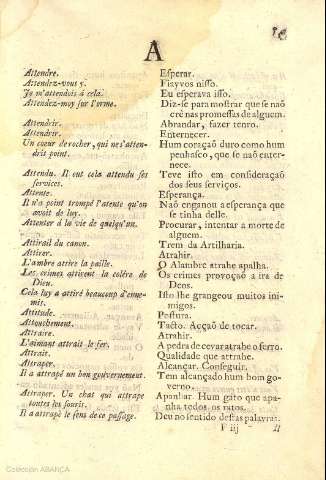 A
Attendre. Esperar.
Attendez-vous y. Fixyvos nisso.
Je m'attendois à cela. Eu esperava isso.
Attendez-moy sur l'orme. Diz-se para mostrar que se naõ
crè nas promessas de alguem.
Attendrir. Abrandar, fazer tenro.
Attendrir. Enternecer.
Un cœur de rocher, qui ne s'atten- Hum coraçaõ duro como hum
drit point. penhasco, que se naõ enter-
nece.
Attendu. Il eut cela attendu ses Teve isto em consideraçaõ
services. dos seus serviços.
Attente. Esperança.
Il n'a point trompé l'atente qu'on Naõ enganou a esperança que
avoit de luy. se tinha delle.
Attenter à la vie de quelqu'un. Procurar, intentar a morte de
alguem.
Attirail du canon. Trem da Artilharia.
Attirer. Atrahir.
L'ambre attire la paille. O Alambre atrahe apalha.
Les crimes attirent la colére de Os crimes provoçaõ a ira de
Dieu. Deos.
Cela luy a attiré beaucoup d'enne- Isto lhe grangeou muitos ini-
mis. migos.
Attitude. Postura.
Attouchement. Tacto. Acçaõ de tocar.
Attraire. Atrahir.
L'aimant attrait le fer. A pedra de cevar atrahe o ferro.
Attrait. Qualidade que attrahe.
Attraper. Alcançar. Conseguir.
Il a attrapé un bon gouvernement. Tem alcançado hum bom go-
verno.
Attraper. Un chat qui attrape Apanhar. Hum gato que apa-
toutes les souris. nha todos os ratos.
Il a attrapé le sens de ce passage. Deu no sentido destas palavras.
F iij
Colección ABANCA